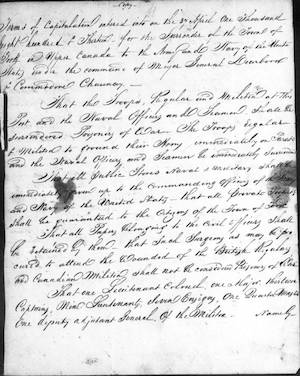 Copy.
Terms of Capitulation entered into on the 27 April One Thousand
Eight Hundred & Thirteen for the Surrender of the Town of
York in Upper Canada to the Army and Navy of the United
States under the command of Major General Dearborn
& Commodore Chauncey —
That the Troops, Regular and Militia at this
Post and the Naval Officers and Seamen shall be
Surrendered Prisoners of War. The Troops regular
& Militia to ground their Arms immediately on Parade
and the Naval Officers and Seamen be immediately Surrendered
That all Public Stores Naval & Military shall be
immediately given up to the Commanding Officers of the Army
and Navy of the United States — that all Private Property
shall be guaranteed to the Citizens of the Town of York
That all Papers belonging to the Civil Officers shall
be retained by them — that such Surgeons as may be pro
cured to attend the Wounded of the British Regulars
and Canadian Militia shall not be considered Prisoners of War
That one Lieutenant Colonel, one Major, thirteen
Captains, Nine Lieutenants, Seven Ensigns, One Quarter Master
One deputy adjutant General of the Militia. Namely